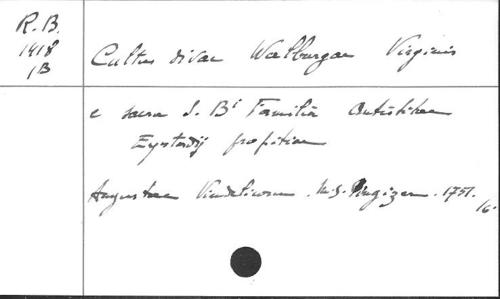 R. B.
1418
1B
Cultus divae Walburgae Virginis
e sacra S. Bi Familia Antistitae
Eystadij propitiae
Augustae Vindelicorum. M. S. Pingizer. 1751.
16°